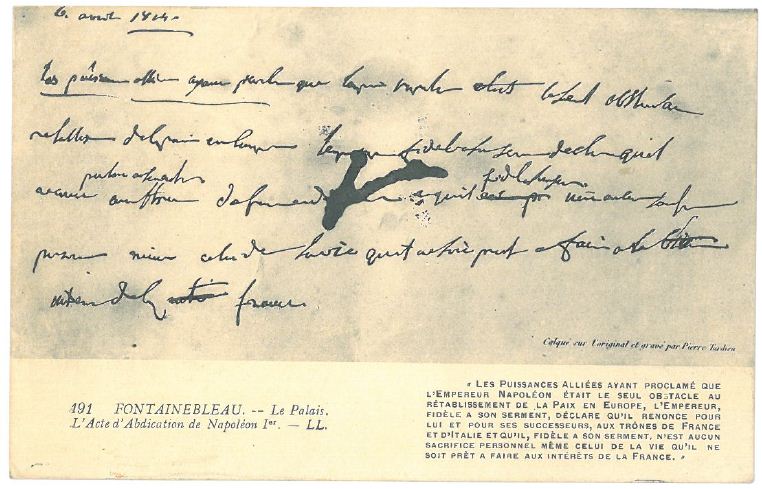 6. avril 1814.
Les puissances alliées ayant proclamé que l'empereur était le seul obstacle au
rétablissement de la paix en Europe l'empereur fidèle à son serment déclare qu'il
fidèle à son serment
renonce
personnel même celui de la vie qu'il ne soit prêt à faire
de la france
Calqué sur l'original et gravé par Pierre Tardieu
191 FONTAINEBLEAU. -- Le Palais.
L'Acte d'Abdication de Napoléon Ier. — LL.
« LES PUISSANCES ALLIÉES AYANT PROCLAMÉ QUE
L'EMPEREUR NAPOLÉON ÉTAIT LE SEUL OBSTACLE AU
RÉTABLISSEMENT DE LA PAIX EN EUROPE, L'EMPEREUR,
FIDÈLE A SON SERMENT, DÉCLARE QU'IL RENONCE POUR
LUI ET POUR SES SUCCESSEURS, AUX TRÔNES DE FRANCE
ET D'ITALIE ET QU'IL, FIDÈLE A SON SERMENT, N'EST AUCUN
SACRIFICE PERSONNEL MÊME CELUI DE LA VIE QU'IL NE
SOIT PRÊT A FAIRE AUX INTÉRÊTS DE LA FRANCE. »